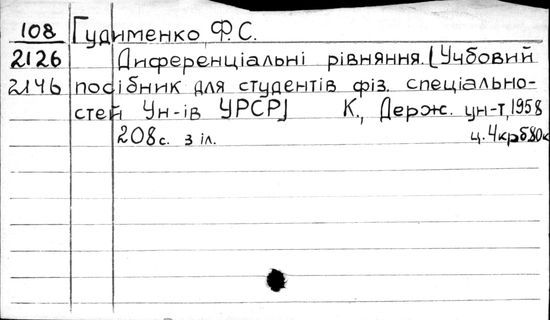 108 Гудименко, Ф.С.
2126 Диференціальні рівняння. [Учбовий
2146 посібник для студентів фіз. спеціально-
стей Ун-ів УРСР] К., Держ. ун-т, 1958
208 с. з іл. ц. 4крб80к